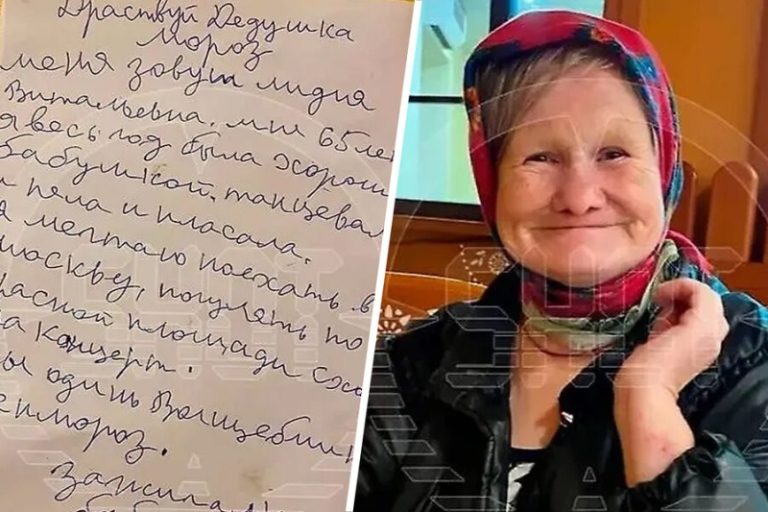 Драствуй Дедушка
мороз
меня зовут лидия
Витальевна. мне 65 лет
я весь год была хорош
бабушкой. танцевал
и пела и плясала.
я мечтаю поехать в
москву, погулять по
расной площади схо
на концерт.
один Волщебник
мороз.